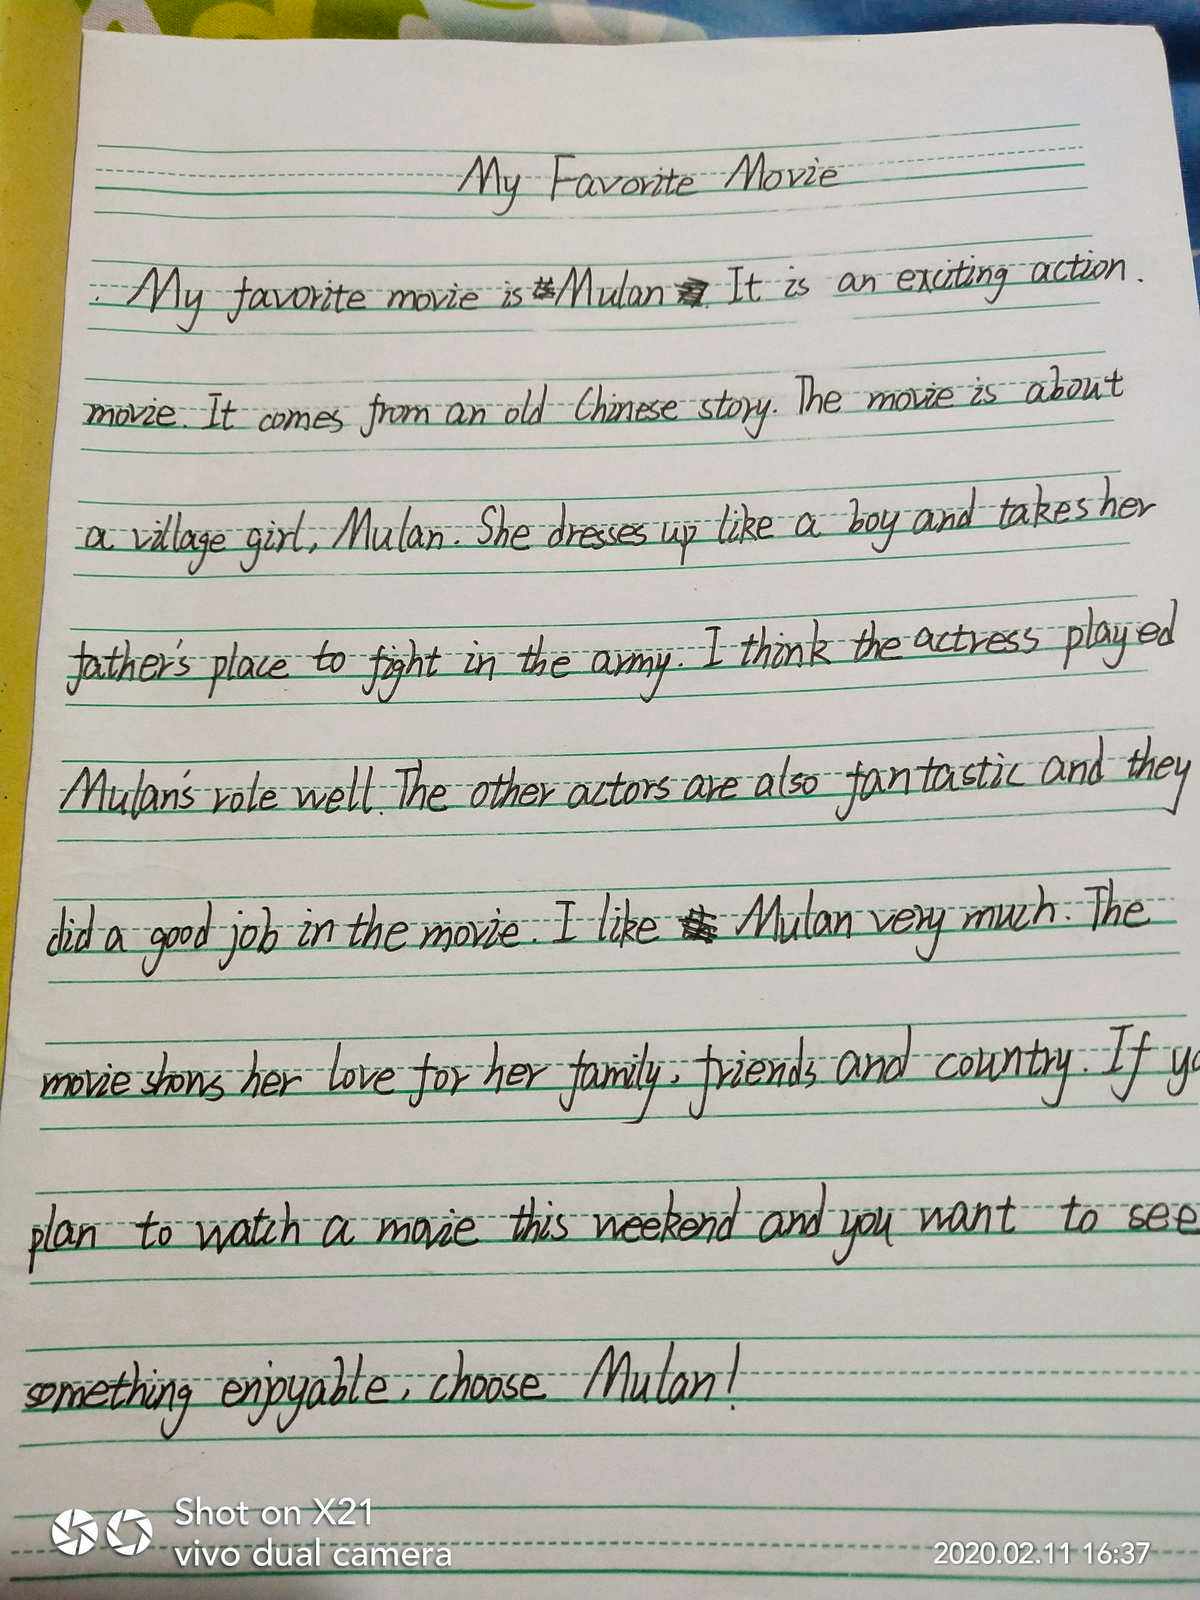 My Favorite Movie
My favorite movie is Mulan. It is an exciting action.
movie. It comes from an old Chinese story. The movie is about
a village girl, Mulan. She dresses up like a boy and takes her
father's place to fight in the army. I think the actress played
Mulan's role well. The other actors are also fantastic and they
did a good job in the movie. I like Mulan very much. The
movie shows her love for her family, friends and country. If yo
plan to watch a movie this weekend and you want to see
something enjoyable, choose Mulan!
Shot on X21
vivo dual camera
2020.02.11 16:37